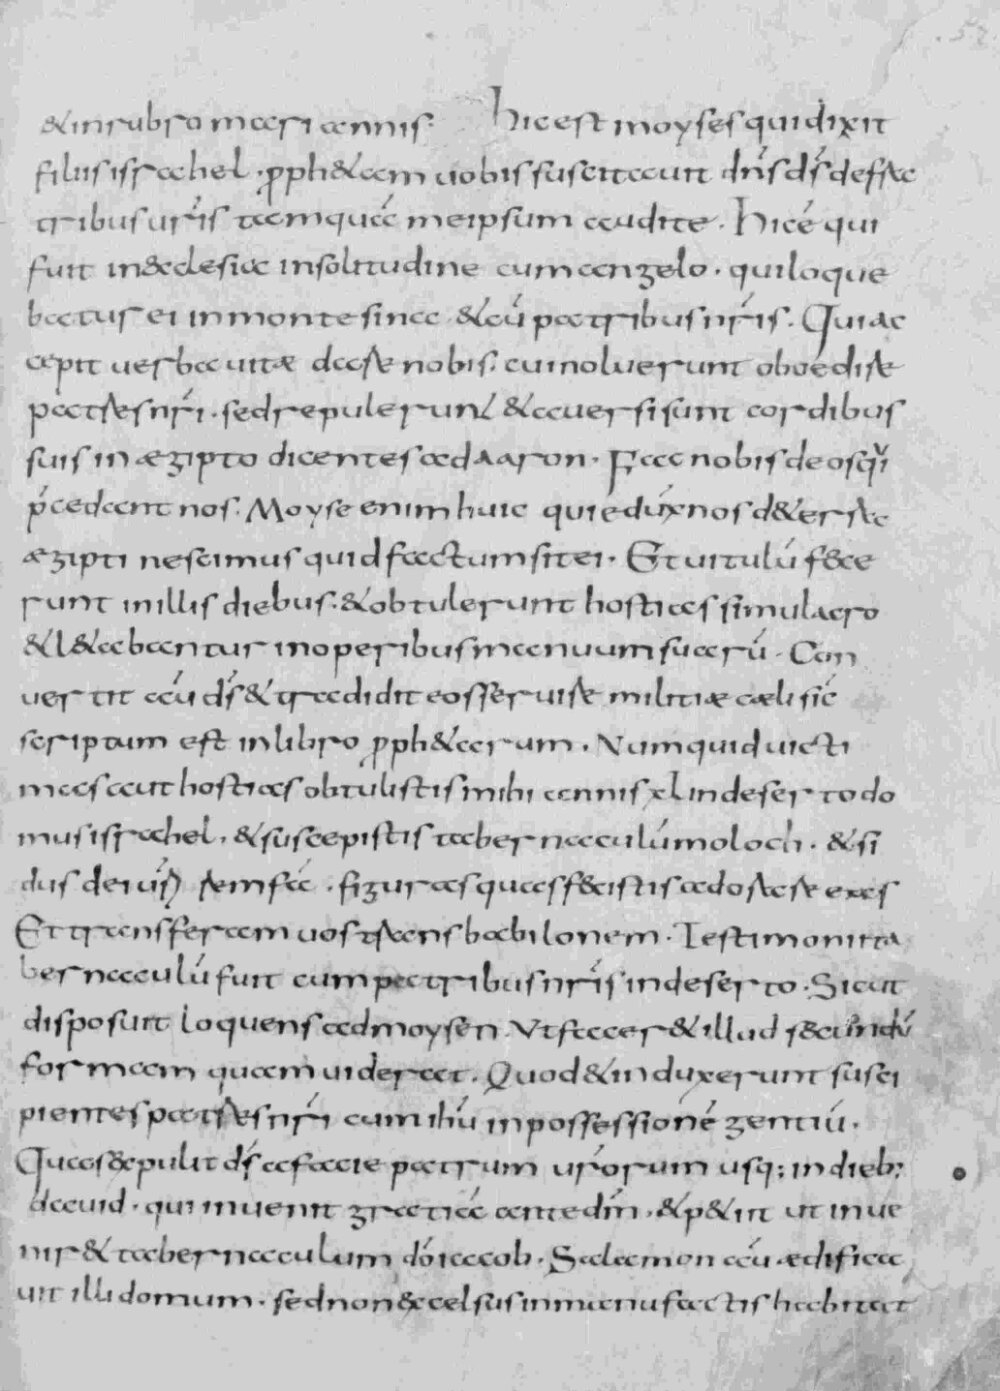 & in rubro mari annis. Hic est moyses qui dixit
filiis israhel. pph&am uobis suscitauit dn̄s ds̄ de fra
tribus uris̄ tamquā me ipsum audite. Hic ē qui
fuit in&clesia in solitudine cum angelo. qui loque
batur ei in monte sina. & cū patribus nris̄. Qui ac
cepit uerba uitæ dare nobis. cui noluerunt oboedire
patres nrī. sed repulerunt & auersi sunt cordibus
suis in ægipto dicentes ad aaron. Fac nobis deos qui
p̄cedant nos. Moyse enim huic qui eduxnos d&erra
ægipti nescimus quid factum sit ei. Et uitulū f&ce
runt in illis diebus. & obtulerunt hostias simulacro
& l&abantur in operibus manuum suarū. Con
uertit aū ds̄ & tradidit eos seruire militiæ cæli sic̄
scriptum est in libro pph&arum. Numquid uicti
mas aut hostias obtulistis mihi annis xl in deserto do
mus israhel. & suscepistis tabernaculū moloch. & si
dus dei urī remfā. figuras quas f&cistis adorare eas
Et transferam uos trans babilonem. Testimonii ta
bernaculū fuit cum patribus nris̄ in deserto. Sicut
disposuit loquens ad moysen. Vt facer& illud s&cundū
formam quam uiderat. Quod & induxerunt susci
pientes patres nrī cum ihū in possessionē gentiū.
Quas &pulit ds̄ a facie patrum urorum usq; in dieb;
dauid. qui inuenit gratiā ante dm̄. & p&iit ut inue
nir& tabernaculum dō iacob. Salamon aū ædifica
uit illi domum. sed non &celsus in manufactis habitat